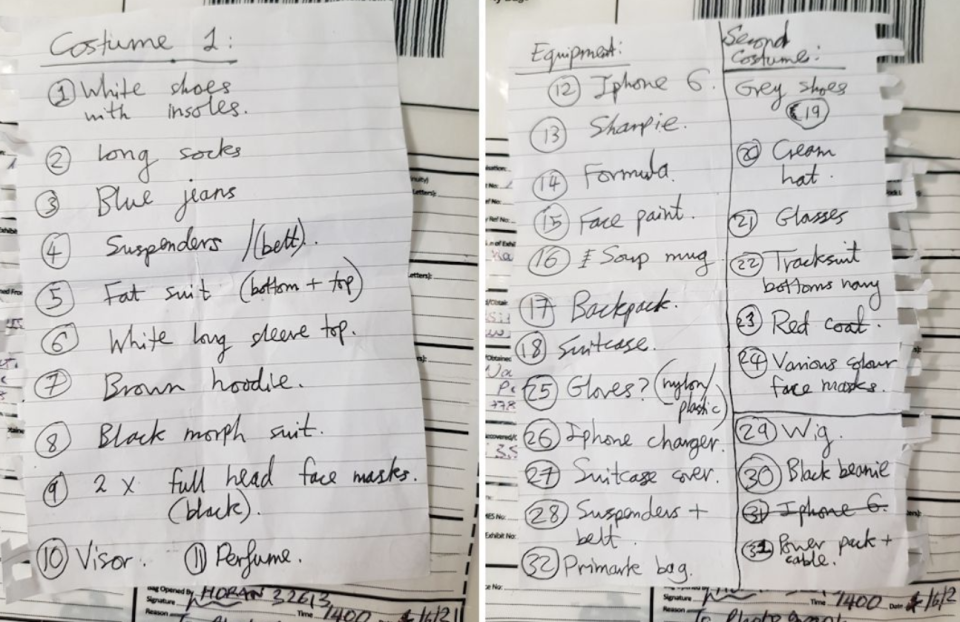 Costume 1:
① White shoes
with insoles.
② Long socks
③ Blue jeans
④ Suspenders /(belt).
⑤ Fat suit (bottom + top)
⑥ White long sleeve top.
⑦ Brown hoodie.
⑧ Black morph suit.
⑨ 2 x full head face masks.
(black).
⑩ Visor. ⑪ Perfume.
Bag Opened By
Signature HORAN 32613
Reason Time 1400
Equipment:
⑫ Iphone 6.
⑬ Sharpie.
⑭ Formula.
⑮ Face paint.
⑯ Soup mug
⑰ Backpack.
⑱ Suitcase.
㉕ Gloves? (nylon/
plastic)
㉖ Iphone charger.
㉗ Suitcase cover.
㉘ Suspenders +
belt.
㉜ Primark bag.
Second
Costume:
Grey shoes
⑲
⑳ Cream
hat.
㉑ Glasses
㉒ Tracksuit
bottoms navy
㉓ Red coat.
㉔ Various colour
face masks.
㉙ Wig.
㉚ Black beanie
㉛ Iphone 6.
Power pack +
cable.
Exhibit No:
Signature
Reason Time 1400 Date
To Photograph